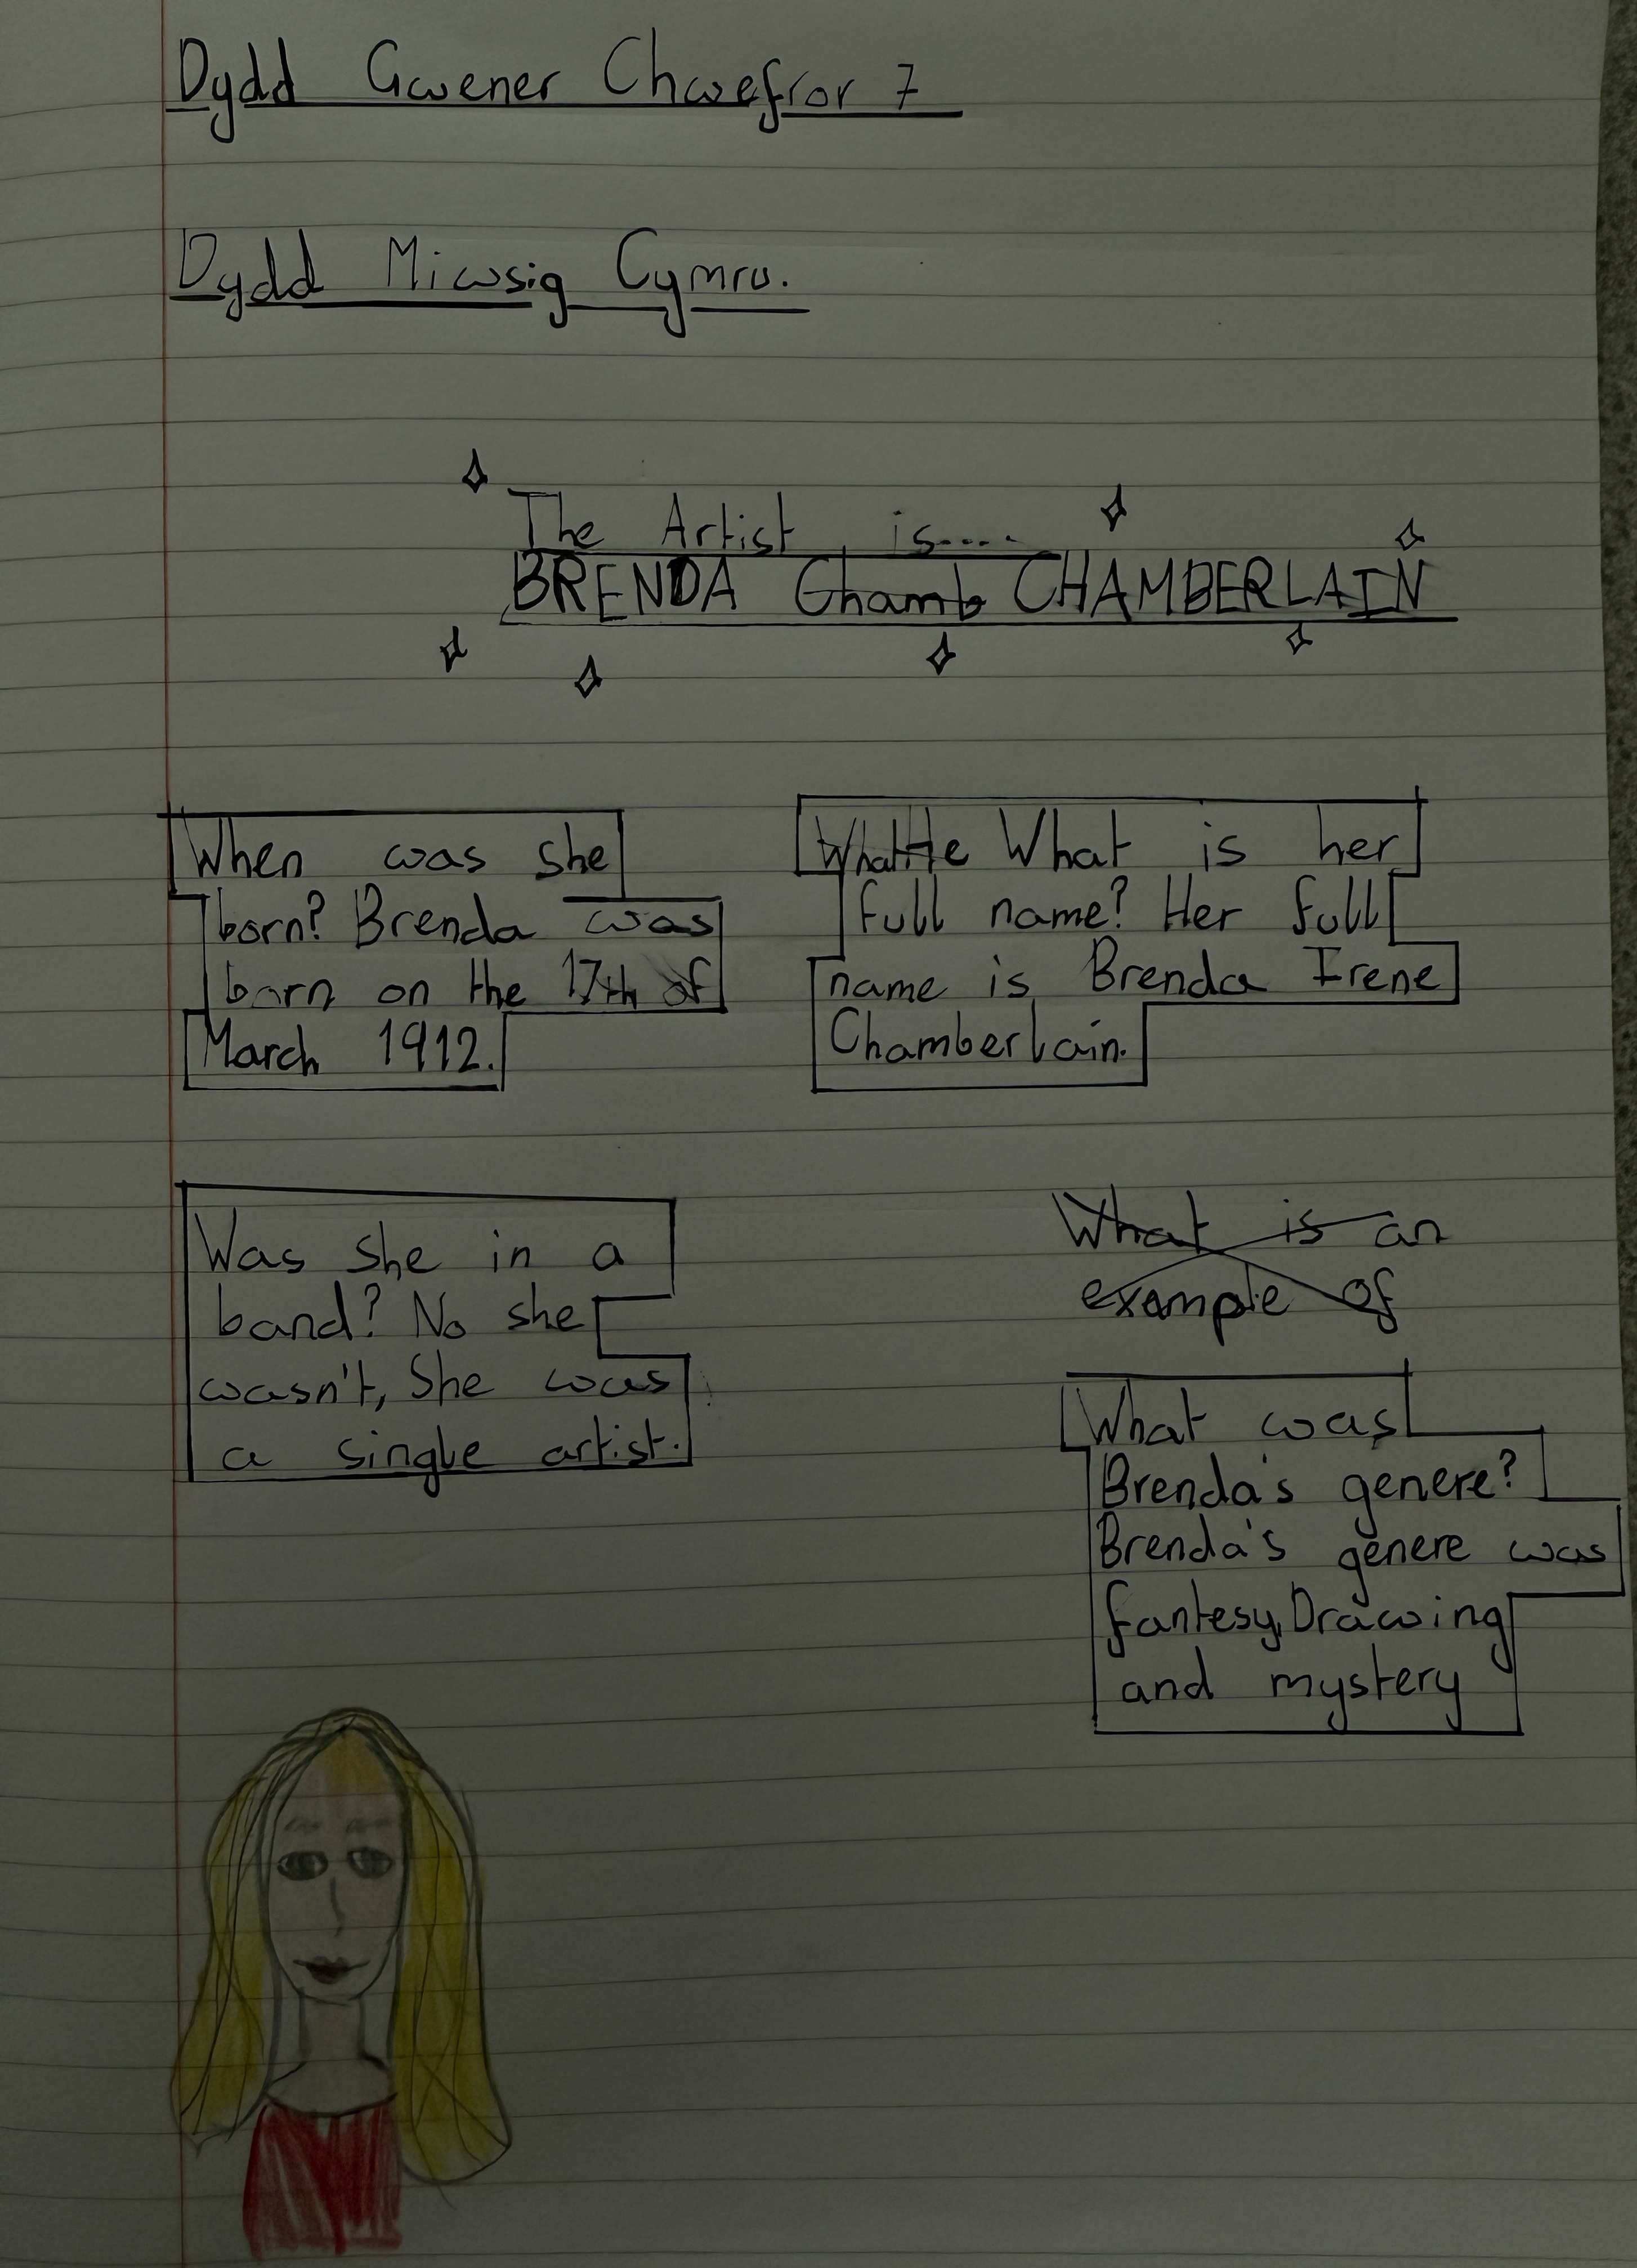 Dydd Gwener Chwefror 7
Dydd Miwsig Cymru.
The Artist is....
BRENDA Chamb CHAMBERLAIN
When was she
born? Brenda was
born on the 17th of
March 1912.
What He What is her
full name? Her full
name is Brenda Irene
Chamberlain.
Was she in a
band? No she
wasn't, She was
a single artist.
What is an
example of
What was
Brenda's genere?
Brenda's genere was
fantesy, Drawing
and mystery